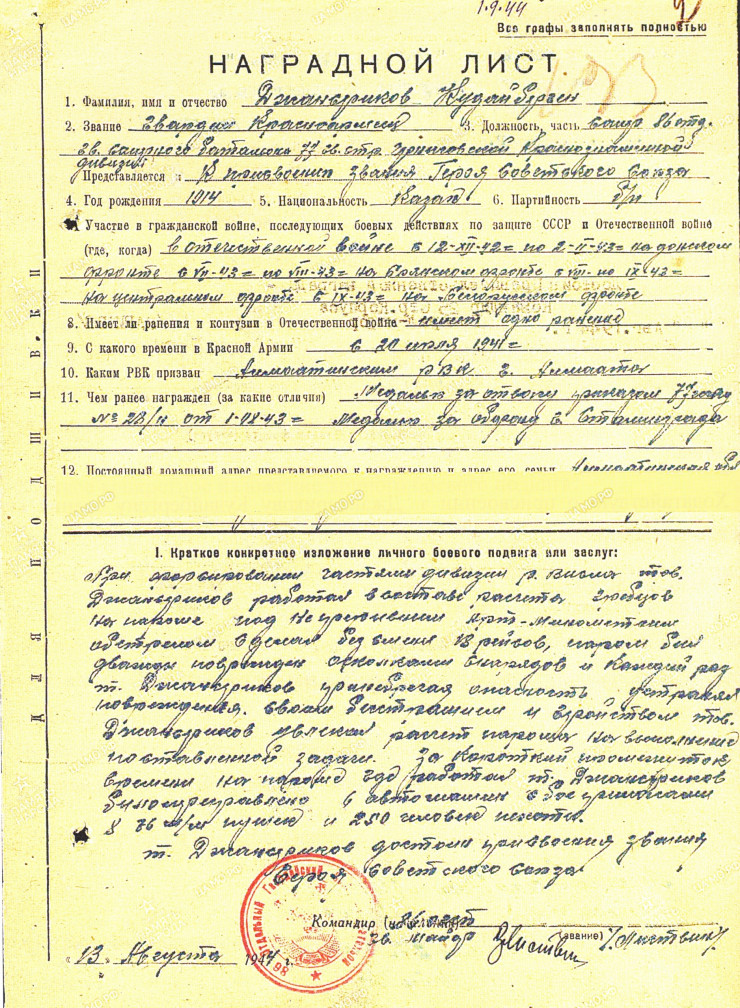 1.9.44
Все графы заполнять полностью
НАГРАДНОЙ ЛИСТ
1. Фамилия, имя и отчество Джансриков Кудайберген
2. Звание Гвардии Красноармеец 3. Должность, часть сапер 86 отд.
гв. саперного баталиона 77 гв. стр. Черниговской Краснознаменной
дивизии
Представляется к присвоению звания Героя Советского Союза
4. Год рождения 1914 5. Национальность Казах 6. Партийность б/п
7. Участие в гражданской войне, последующих боевых действиях по защите СССР и Отечественной войне
(где, когда) в отечественной войне с 12-XII-42= по 2-II-43= на донском
фронте с VII-43= по VIII-43= на Брянском фронте с VIII- по IX-43=
на центральном фронте с IX-43= на Белорусском фронте
8. Имеет ли ранения и контузии в Отечественной войне имеет одно ранение
9. С какого времени в Красной Армии с 20 июля 1941=
10. Каким РВК призван Алмаатинским РВК г. Алмаата
11. Чем ранее награжден (за какие отличия) Медалью за отвагу приказом 77 гвсд
№ 23/н от Медалью за оборону г. Сталинграда
12. Постоянный домашний адрес представляемого к награждению и адрес его семьи Алмаатинская обл
ДЛЯ ПОДШИВКИ
I. Краткое конкретное изложение личного боевого подвига или заслуг:
При форсировании частями дивизии р. Висла тов.
Джансриков работал в составе расчета гребцов
на пароме под непрерывным арт-минометным
обстрелом сделал без смены 18 рейсов, паром был
дважды поврежден осколками снарядов и каждый раз
т. Джансриков пренебрегая опасность устранял
повреждения. Своим бесстрашием и геройством тов.
Джансриков увлекал расчет парома на выполнение
поставленной задачи. За короткий промежуток
времени на пароме где работал т. Джансриков
было переправлено 6 автомашин с боеприпасами
8 76 м/м пушек и 250 человек пехоты.
т. Джансриков достоин присвоения звания
Героя Советского Союза.
Командир 86
гв. майор (звание)
"13" Августа 1944 г.